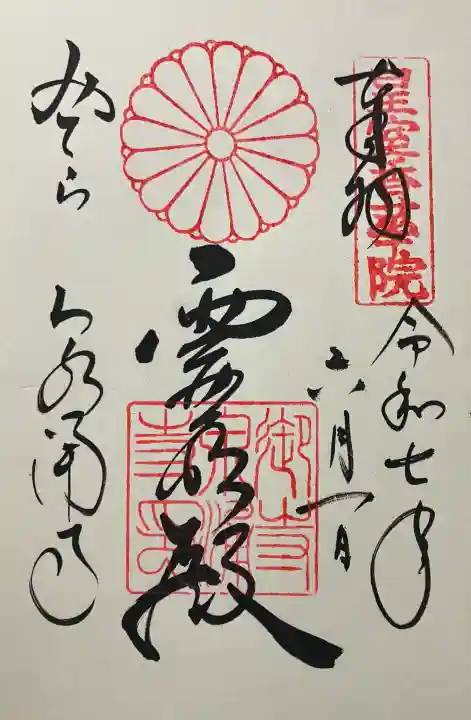 奉拝
皇室香華院
令和七年
六月一日
霊明殿
御寺
泉涌
寺印
みてら 泉涌寺